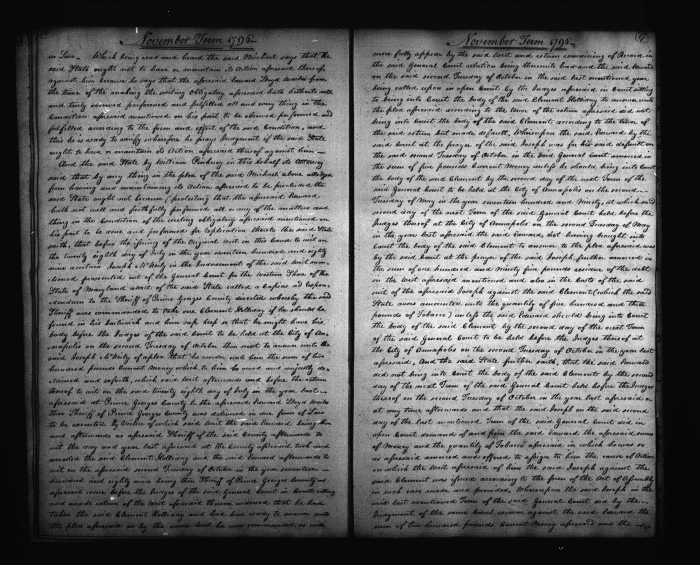 November Term 1795
in Law. Which being read and heard the said Michael says that the
said State ought not to have or maintain its Action aforesaid thereof
against him because he says that the aforesaid Edward Lloyd
the time of the making the writing Obligatory aforesaid hath hitherto well
and truly observed performed and fulfilled all and every thing in the
Condition aforesaid mentioned on his part to be observed performed and
fulfilled according to the form and effect of the said Condition, and
this he is ready to verify wherefore he prays Judgment if the said State
ought to have or maintain its Action aforesaid thereof against him
And the said State by William Pinkney in this behalf its Attorney
said that by any thing in the plea of the said Michael above alledged
from having and maintaining its Action aforesaid to be precluded the
said State ought not because (protesting that the aforesaid Edward
hath not well and faithfully performed all and any of the matters and
thing in the Condition of the writing obligatory aforesaid mentioned on
his part to be done and performed for replication thereto the said State
saith, that before the issuing of the Original writ in this Cause to wit on
the twenty eighth day of July in the year seventeen hundred and eighty
nine a certain Joseph in the
sued prosecuted out of the General Court for the Western Shore of the
State of Maryland a writ of the said State called a Capias ad
to the Sheriff of Prince Georges County directed whereby the said
Sheriff was commanded to take one Clement Holliday if he should be
found in his bailiwick and him safe keep so that he might have his
body before the Judges of the said Court to be held at the City of An-
napolis on the second Tuesday of October then next to answer unto the
said Joseph of a plea that he render unto him the sum of two
hundred pounds Current Money which to him he owed and unjustly de-
tained and so forth, which said writ afterwards and before the return
thereof to wit on the said twenty eighth day of July in the year last
aforesaid at Prince Georges County to the aforesaid Edward Lloyd
then Sheriff of Prince Georges County was delivered in due form of Law
to be executed by Virtue of which said writ the said Edward being then
and afterwards as aforesaid Sheriff of the said County afterwards to
wit the day and year last aforesaid at the County aforesaid took and
arrested the said Clement Holliday and the said Edward afterwards to
wit on the aforesaid second Tuesday of October in the year seventeen
hundred and eighty nine being then Sheriff of Prince Georges County as
aforesaid came before the Judges of the said General Court in Court sitting
and made return of the writ aforesaid thereon indorsed that he had
taken the said Clement Holliday and had him ready to answer unto
the plea aforesaid as by the same writ he was commanded as will
November Term 1795
more fully appear by the said Writ and return remaining of Record in
the said General Court relation being thereunto had and the said Edward
on the said second Tuesday of October in the said last mentioned year
being called upon in open Court by the Judges aforesaid in Court sitting
to bring into Court the body of the said Clement Holliday to answer unto
the plea aforesaid according to the tenor of the return aforesaid did not
bring into Court the body of the said Clement according to the tenor of
the said return but made default, Whereupon the said Edward by the
said Court at the prayer of the said Joseph was for his said default on
the said second Tuesday of October in the said General Court amerced in
the sum of five pounds Current Money unless he should bring into Court
the body of the said Clement by the second day of the next Term of the
said General Court to be held at the City of Annapolis on the second
Tuesday of May in the year seventeen hundred and Ninety, at which said
second day of the next Term of the said General Court held before the
Judges thereof at the City of Annapolis on the second Tuesday of May
in the year last aforesaid the said Edward, not having brought into
Court the body of the said Clement to answer to the plea aforesaid was
by the said Court at the prayer of the said Joseph further amerced in
the sum of one hundred and Ninety five pounds residue of the debt
in the writ aforesaid mentioned and also in the Costs of the said
suit of the aforesaid Joseph against the said Clement (which the said
State avers amounted unto the quantity of five hundred and three
pounds of Tobacco) unless the said Edward should bring into Court
the body of the said Clement by the second day of the next Term
of the said General Court to be held before the Judges thereof at
the City of Annapolis on the second Tuesday of October in the year last
aforesaid, And the said State further saith, that the said Edward
did not bring into Court the body of the said Clement by the second
day of the next Term of the said General Court held before the Judges
thereof on the second Tuesday of October in the year last aforesaid or
at any time afterwards and that the said Joseph on the second
day of the last mentioned Term of the said General Court did in
open Court demand of and from the said Edward the aforesaid sums
of Money and the quantity of Tobacco aforesaid in which he was so
as aforesaid amerced and offered to assign to him the cause of Action
on which the writ aforesaid of him the said Joseph against the
said Clement was issued according to the form of the Act of Assembly
in such case made and provided, Whereupon the said Joseph in the
said last mentioned Term of the said General Court did by the
Judgment of the same Court recover against the said Edward the
sum of two hundred pounds Current Money aforesaid and the